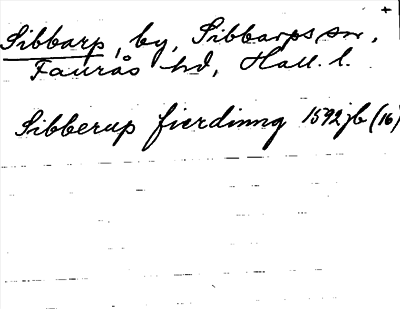 +
Sibbarp, by, Sibbarps sn,
Faurås hd, Hall. l.
Sibberup fierdinng 1592 jb (16)